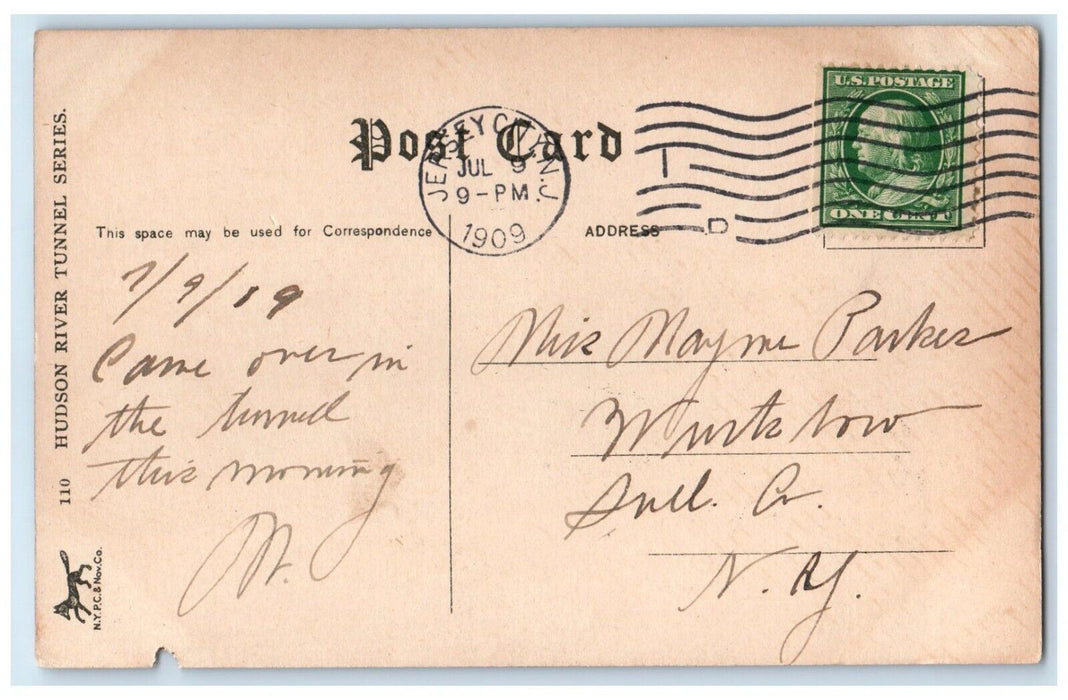 Post Card
U.S. POSTAGE
ONE CENT
JERSEY CITY, N.J.
JUL 9
9-PM
1909
1
D
This space may be used for Correspondence
ADDRESS
7/9/19
Came over in
the tunnel
this morning
M.
Miss Mayme Parker
Sull. Co.
N. Y.
110 HUDSON RIVER TUNNEL SERIES.
N.Y.P.C.&Nov.Co.